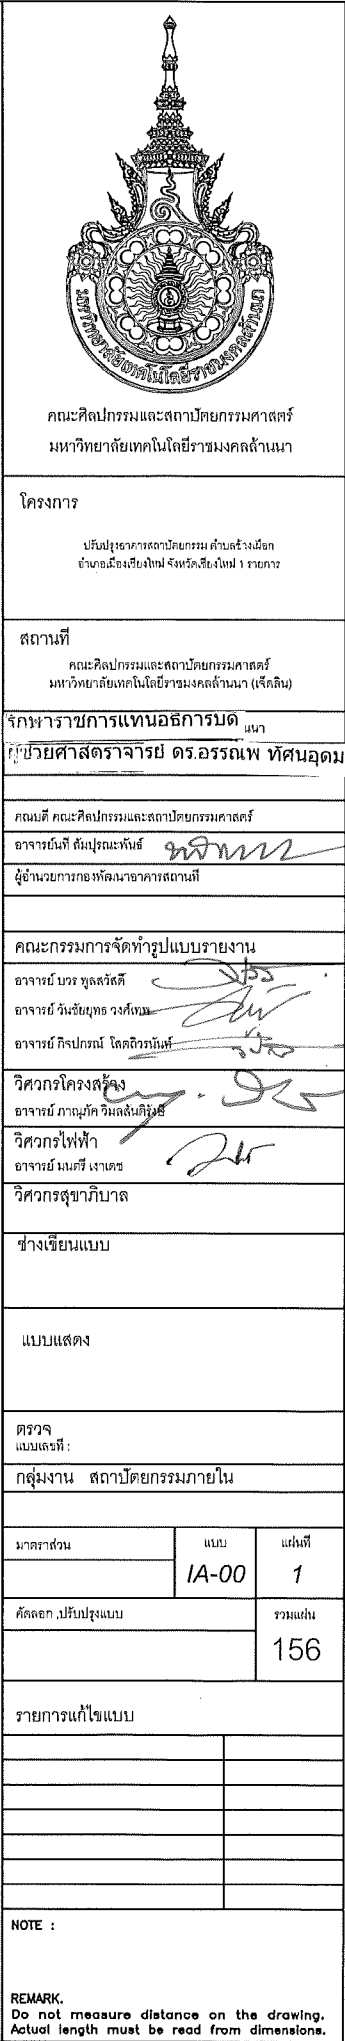 มหาวิทยาลัยเทคโนโลยีราชมงคลล้านนา
คณะศิลปกรรมและสถาปัตยกรรมศาสตร์
มหาวิทยาลัยเทคโนโลยีราชมงคลล้านนา
โครงการ
ปรับปรุงอาคารสถาปัตยกรรม ตำบลช้างเผือก
อำเภอเมืองเชียงใหม่ จังหวัดเชียงใหม่ 1 รายการ
สถานที่
คณะศิลปกรรมและสถาปัตยกรรมศาสตร์
มหาวิทยาลัยเทคโนโลยีราชมงคลล้านนา (เจ็ดลิน)
รักษาราชการแทนอธิการบดี นนา
ผู้ช่วยศาสตราจารย์ ดร.อรรณพ ทัศนอุดม
คณบดี คณะศิลปกรรมและสถาปัตยกรรมศาสตร์
อาจารย์นที สัมปุรณะพันธ์
ผู้อำนวยการกองพัฒนาอาคารสถานที่
คณะกรรมการจัดทำรูปแบบรายงาน
อาจารย์ บวร พูลสวัสดิ์
อาจารย์ วันชัยยุทธ วงศ์เทพ
อาจารย์ กิรปกรณ์
วิศวกรโครงสร้าง
อาจารย์ ภาณุภัค
วิศวกรไฟฟ้า
อาจารย์ มนตรี เงาเดช
วิศวกรสุขาภิบาล
ช่างเขียนแบบ
แบบแสดง
ตรวจ
แบบเลขที่ :
กลุ่มงาน สถาปัตยกรรมภายใน
มาตราส่วน แบบ แผ่นที่
IA-00 1
คัดลอก ,ปรับปรุงแบบ รวมแผ่น
156
รายการแก้ไขแบบ
NOTE :
REMARK.
Do not measure distance on the drawing.
Actual length must be read from dimensions.